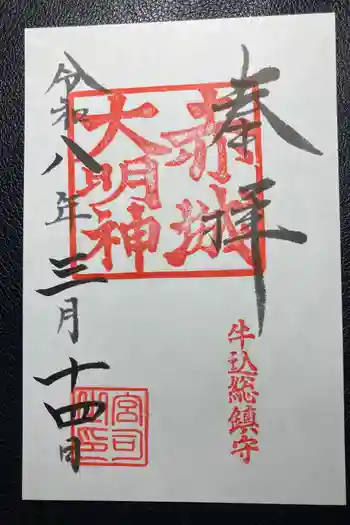 奉拝
赤城
大明神
牛込総鎮守
令和八年三月十四日
宮司之印